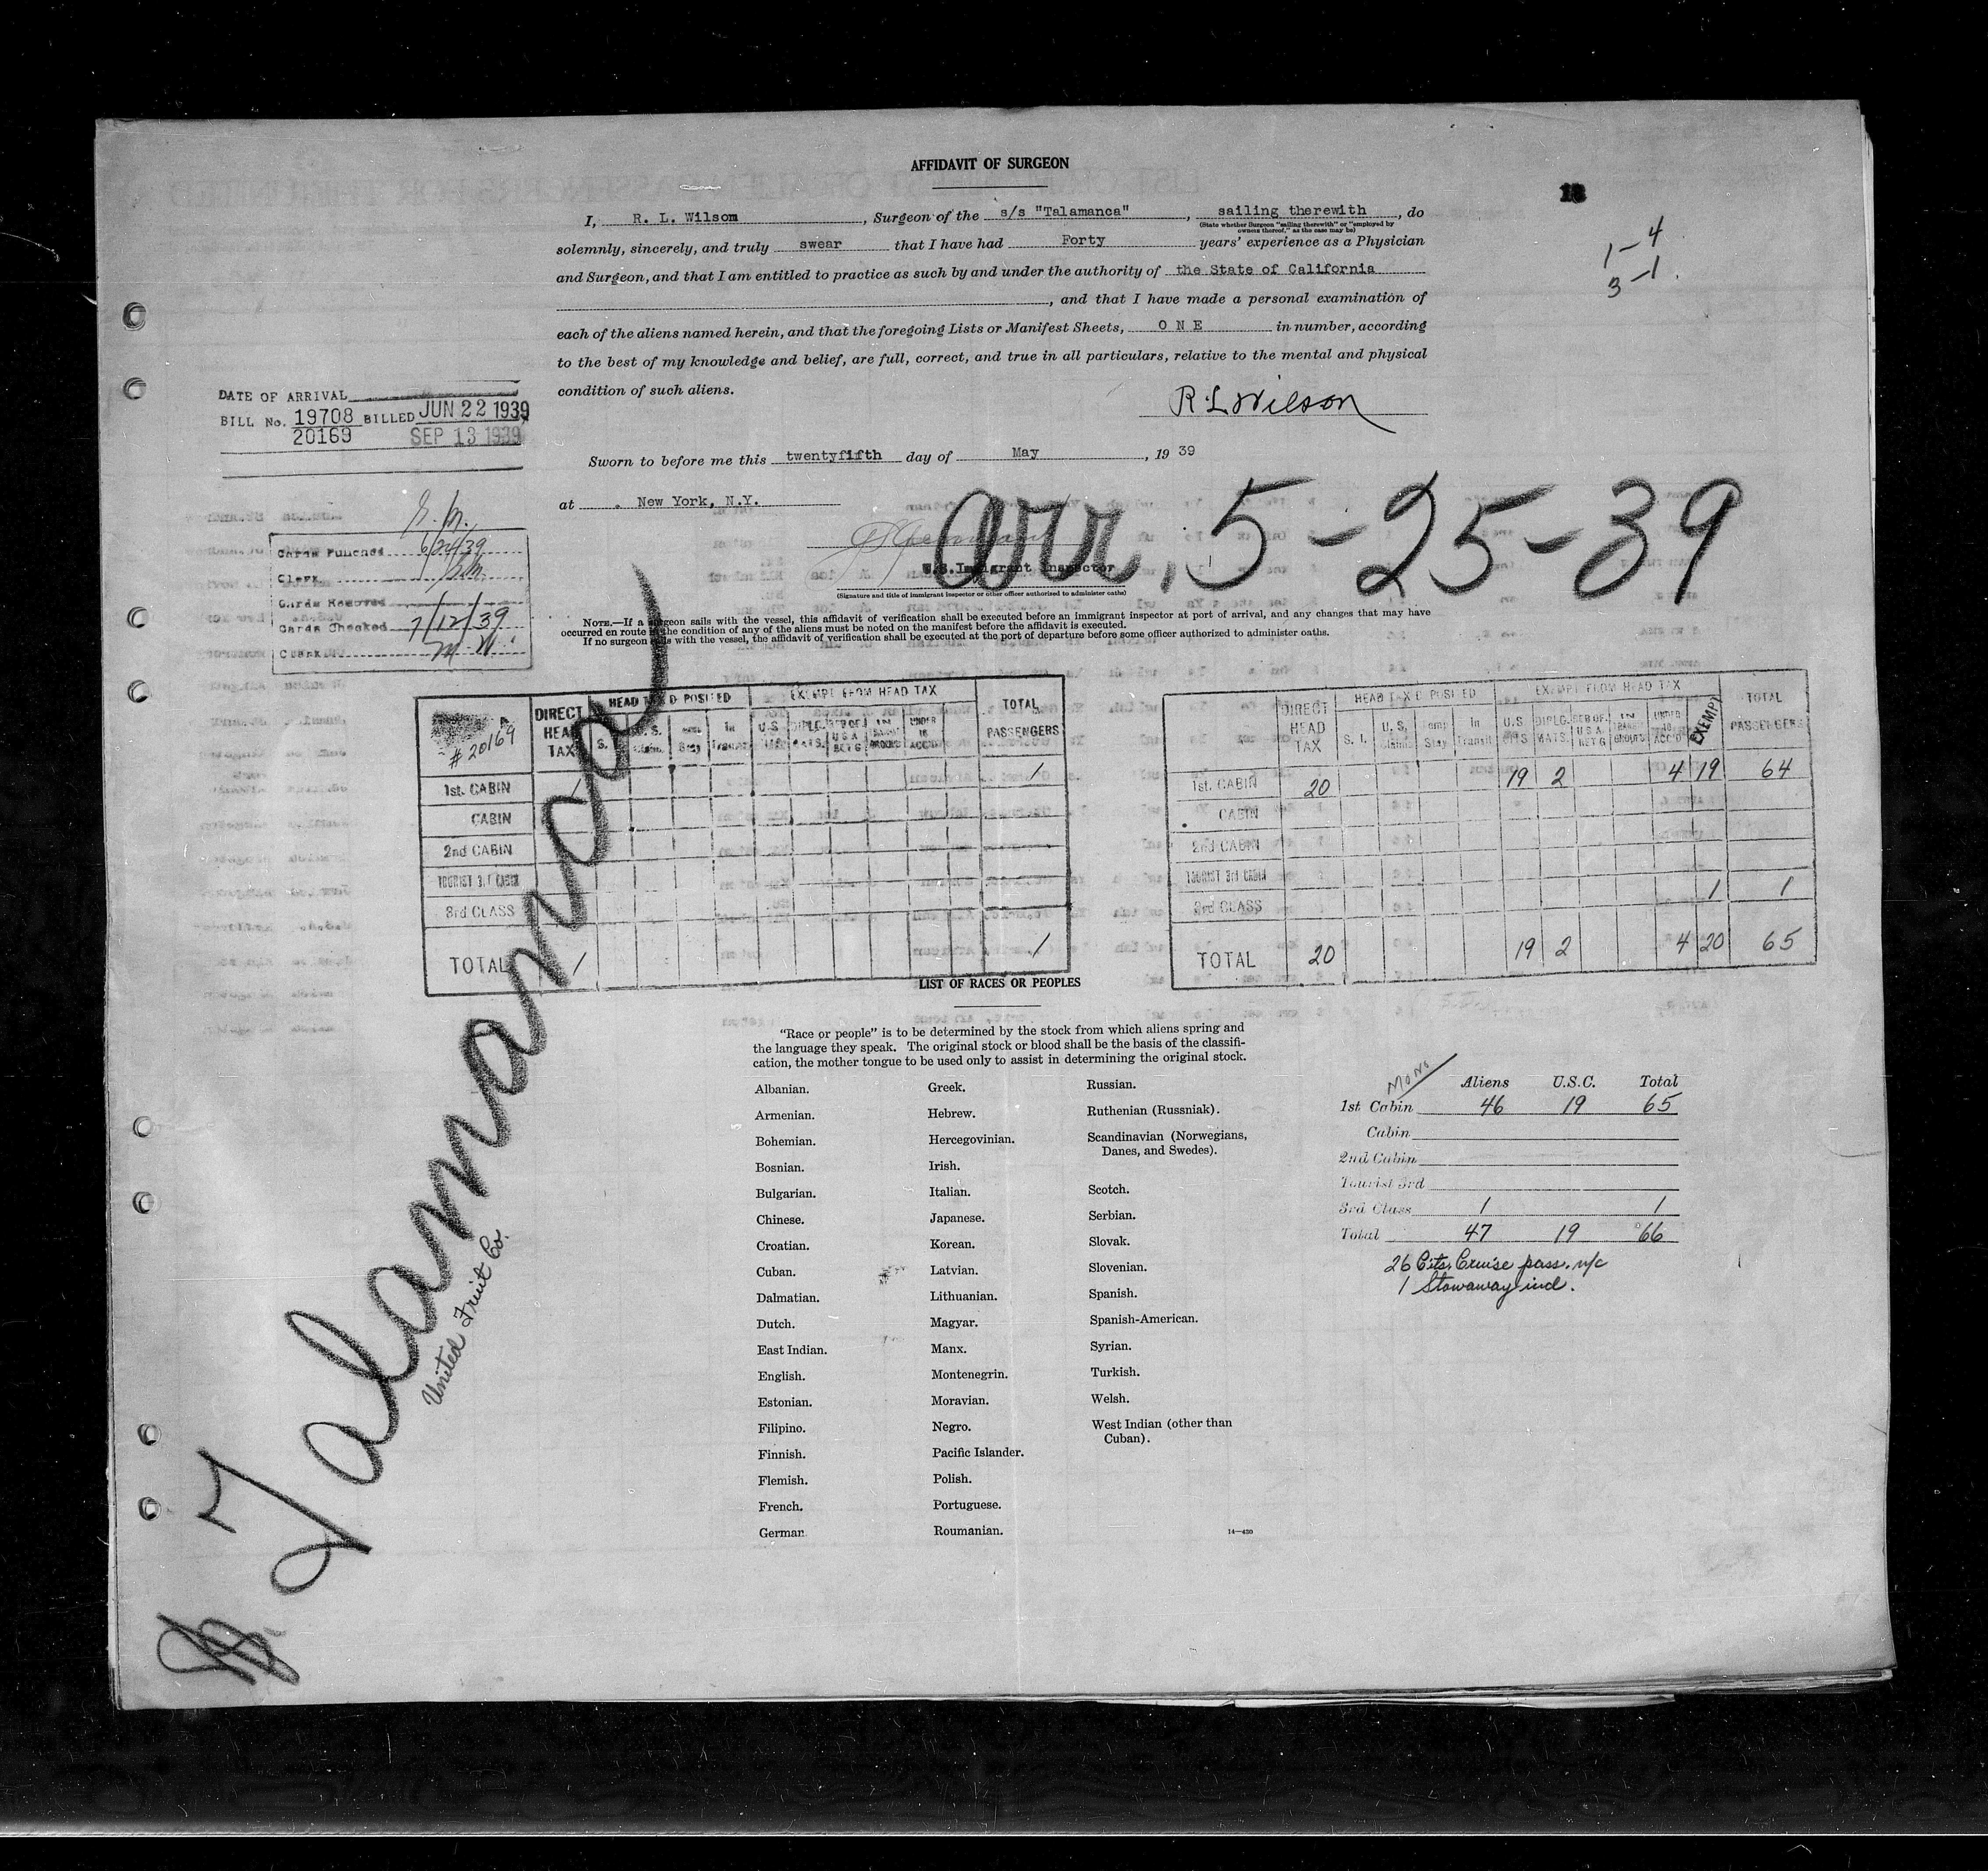 AFFIDAVIT OF SURGEON
13
I, R. L. Wilson, Surgeon of the s/s "Talamanca", sailing therewith, do
(State whether Surgeon "sailing therewith" or "employed by
owners thereof," as the case may be)
solemnly, sincerely, and truly swear that I have had Forty years' experience as a Physician
and Surgeon, and that I am entitled to practice as such by and under the authority of the State of California
, and that I have made a personal examination of
each of the aliens named herein, and that the foregoing Lists or Manifest Sheets, O N E in number, according
to the best of my knowledge and belief, are full, correct, and true in all particulars, relative to the mental and physical
condition of such aliens.
1-4
3-1.
R L Wilson
DATE OF ARRIVAL
BILL No. 19708 BILLED JUN 22 1939
20169 SEP 13 1939
Sworn to before me this twentyfifth day of May, 19 39
at New York, N.Y.
arr. 5-25-39
U.S. Immigrant Inspector
(Signature and title of immigrant inspector or other officer authorized to administer oaths)
Cards Punched 6/24/39
Clerk
Cards Removed
Cards Checked 7/12/39
Clerk M. W.
NOTE.—If a surgeon sails with the vessel, this affidavit of verification shall be executed before an immigrant inspector at port of arrival, and any changes that may have
occurred en route in the condition of any of the aliens must be noted on the manifest before the affidavit is executed.
If no surgeon sails with the vessel, the affidavit of verification shall be executed at the port of departure before some officer authorized to administer oaths.
# 20169
DIRECT HEAD TAX HEAD TAX DEPOSITED EXEMPT FROM HEAD TAX TOTAL PASSENGERS
1st. CABIN 1 1
CABIN
2nd CABIN
TOURIST 3rd CABIN
3rd CLASS
TOTAL 1 1
DIRECT HEAD TAX HEAD TAX DEPOSITED EXEMPT FROM HEAD TAX TOTAL PASSENGERS
S. I. U.S. Claims Temp Stay In Transit U.S. CITS DIPLO. MATS. RES OF U S A RET'G IN TRANSIT GROUPS UNDER 16 ACC'D EXEMPT
1st. CABIN 20 19 2 4 19 64
CABIN
2nd CABIN
TOURIST 3rd CABIN
3rd CLASS 1 1
TOTAL 20 19 2 4 20 65
Talamanca
United Fruit Co.
LIST OF RACES OR PEOPLES
"Race or people" is to be determined by the stock from which aliens spring and
the language they speak. The original stock or blood shall be the basis of the classifi-
cation, the mother tongue to be used only to assist in determining the original stock.
Albanian.
Armenian.
Bohemian.
Bosnian.
Bulgarian.
Chinese.
Croatian.
Cuban.
Dalmatian.
Dutch.
East Indian.
English.
Estonian.
Filipino.
Finnish.
Flemish.
French.
German
Greek.
Hebrew.
Hercegovinian.
Irish.
Italian.
Japanese.
Korean.
Latvian.
Lithuanian.
Magyar.
Manx.
Montenegrin.
Moravian.
Negro.
Pacific Islander.
Polish.
Portuguese.
Roumanian.
Russian.
Ruthenian (Russniak).
Scandinavian (Norwegians,
Danes, and Swedes).
Scotch.
Serbian.
Slovak.
Slovenian.
Spanish.
Spanish-American.
Syrian.
Turkish.
Welsh.
West Indian (other than
Cuban).
14—430
Mono
Aliens U.S.C. Total
1st Cabin 46 19 65
Cabin
2nd Cabin
Tourist 3rd
3rd Class 1 1
Total 47 19 66
26 Cits. Cruise pass. n/c
1 Stowaway incl.